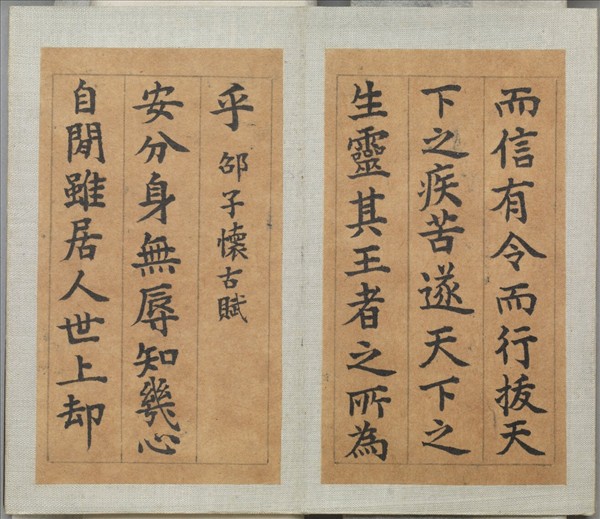 而信有令而行拔天
下之疾苦遂天下之
生靈其王者之所為
乎 邵子懷古賦
安分身無辱知幾心
自閒雖居人世上却